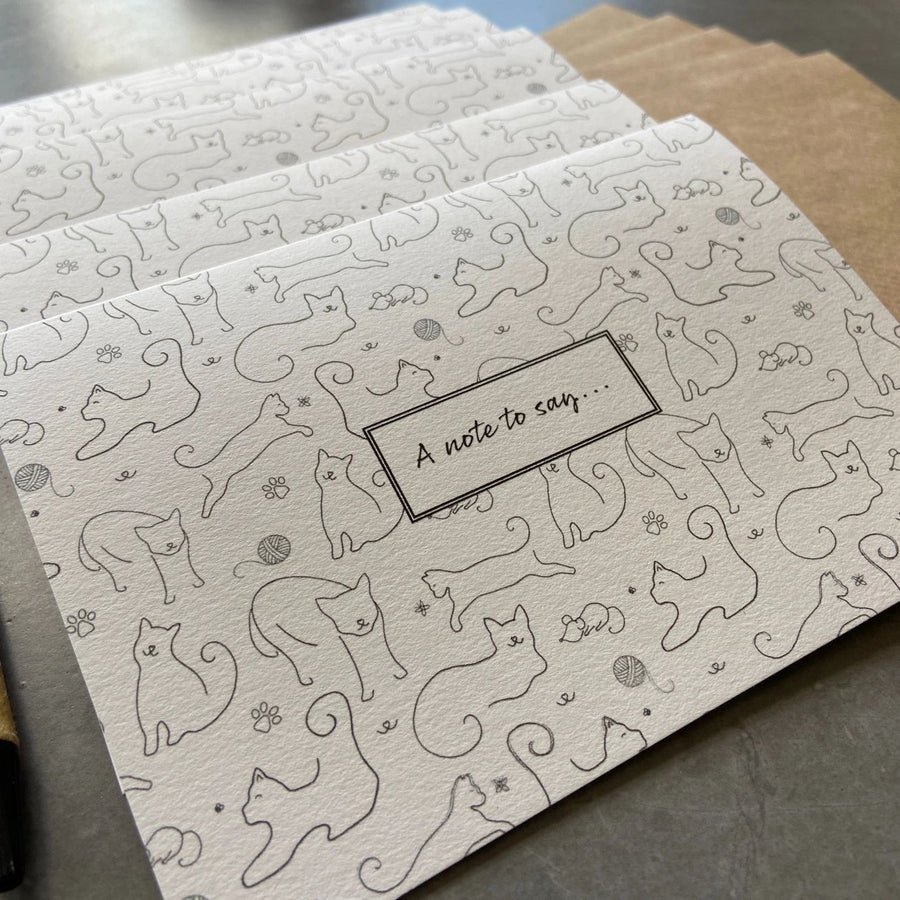 A note to say...